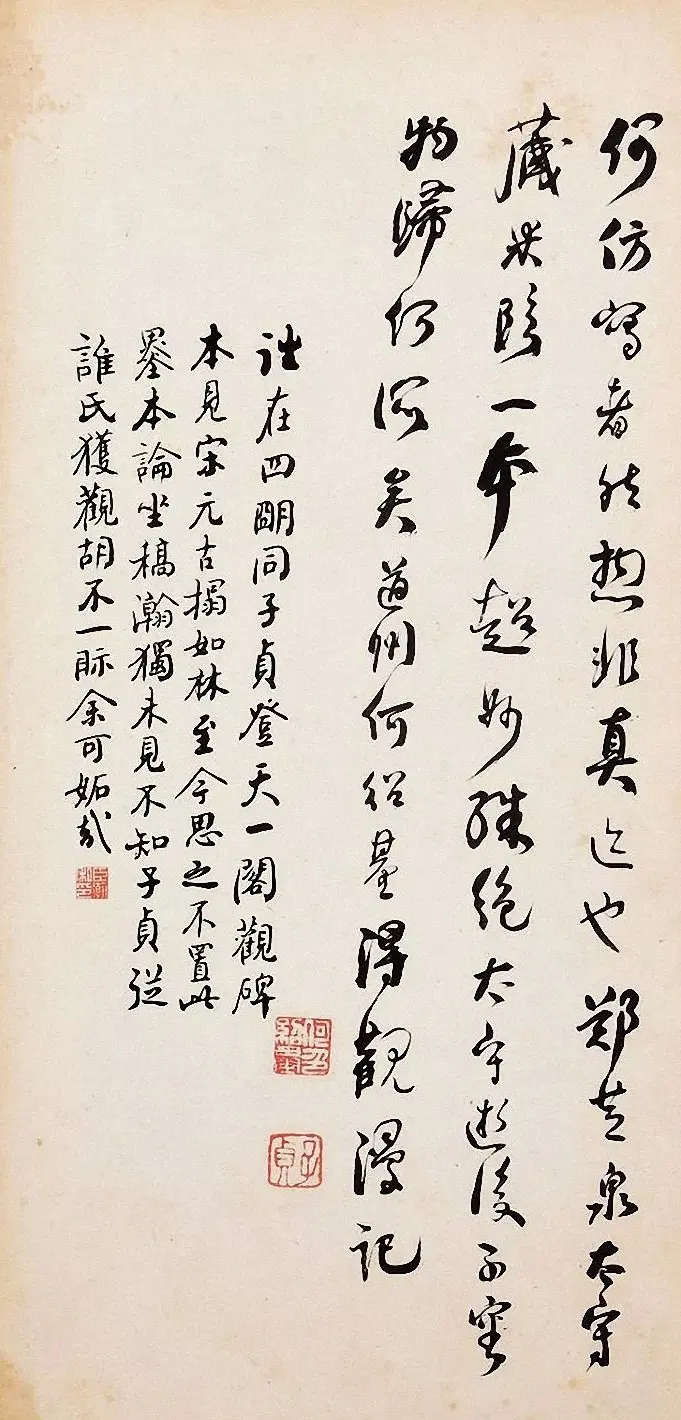 何仿寫者然想非真迹也鄭芝泉太守
藏米臨一本超妙殊絕太守逝後不審
物歸何所矣道州何紹基得觀漫記
何紹基印
子貞
往在四明同子貞登天一閣觀碑
本見宋元古搨如林至今思之不置此
墨本論坐稿瀚獨未見不知子貞從
誰氏獲觀胡不一眎余可妬哉